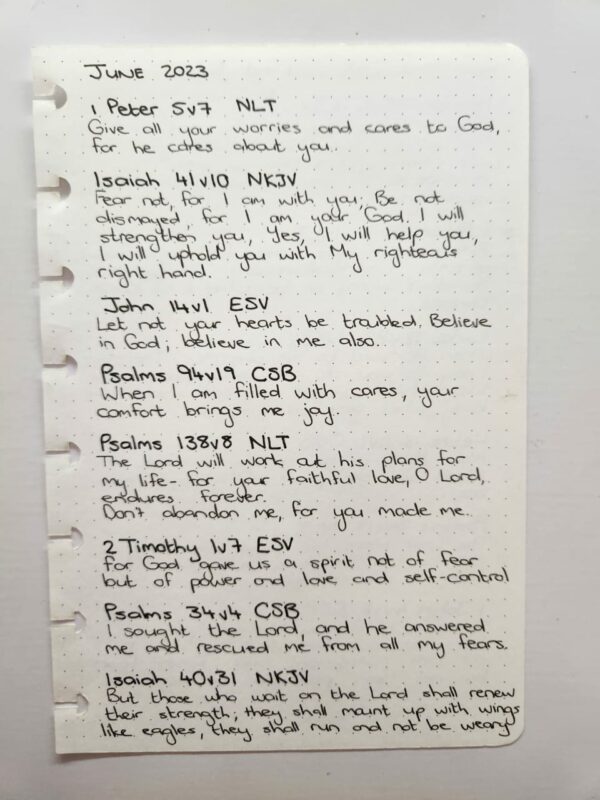 JUNE 2023
1 Peter 5v7 NLT
Give all your worries and cares to God,
for he cares about you.
Isaiah 41v10 NKJV
Fear not, for I am with you; Be not
dismayed, for I am your God. I will
strengthen you, Yes, I will help you,
I will uphold you with My righteous
right hand.
John 14v1 ESV
Let not your hearts be troubled. Believe
in God; believe in me also.
Psalms 94v19 CSB
When I am filled with cares, your
comfort brings me joy.
Psalms 138v8 NLT
The Lord will work out his plans for
my life- for your faithful love, O Lord,
endures forever.
Don't abandon me, for you made me.
2 Timothy 1v7 ESV
for God gave us a spirit not of fear
but of power and love and self-control
Psalms 34v4 CSB
I sought the Lord, and he answered
me and rescued me from all my fears.
Isaiah 40v31 NKJV
But those who wait on the Lord shall renew
their strength; they shall mount up with wings
like eagles, they shall run and not be weary